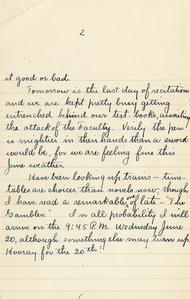 2
it good or bad.
Tomorrow is the last day of recitations
and we are kept pretty busy getting
entrenched behind our text-books, awaiting
the attack of the Faculty. Verily the pen
is mightier in their hands than a sword
would be, for we are feeling fine this
June weather.
Have been looking up trains – time-
tables are choicer than novels now, though
I have read a remarkable one of late – "The
Gambler." In all probability I will
arrive on the 9:45 P.M. Wednesday June
20, although something else may turn up.
Hooray for the 20th!